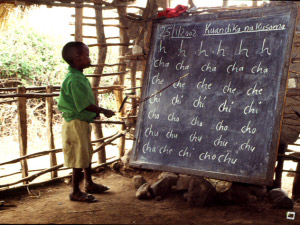 25/1/2002 Kuandika na Kusoma
h h h h h h
cha cha cha cha
che che che che
chi chi chi chi
cho cho cho cho
chu chu chu chu
cha che chi cho chu